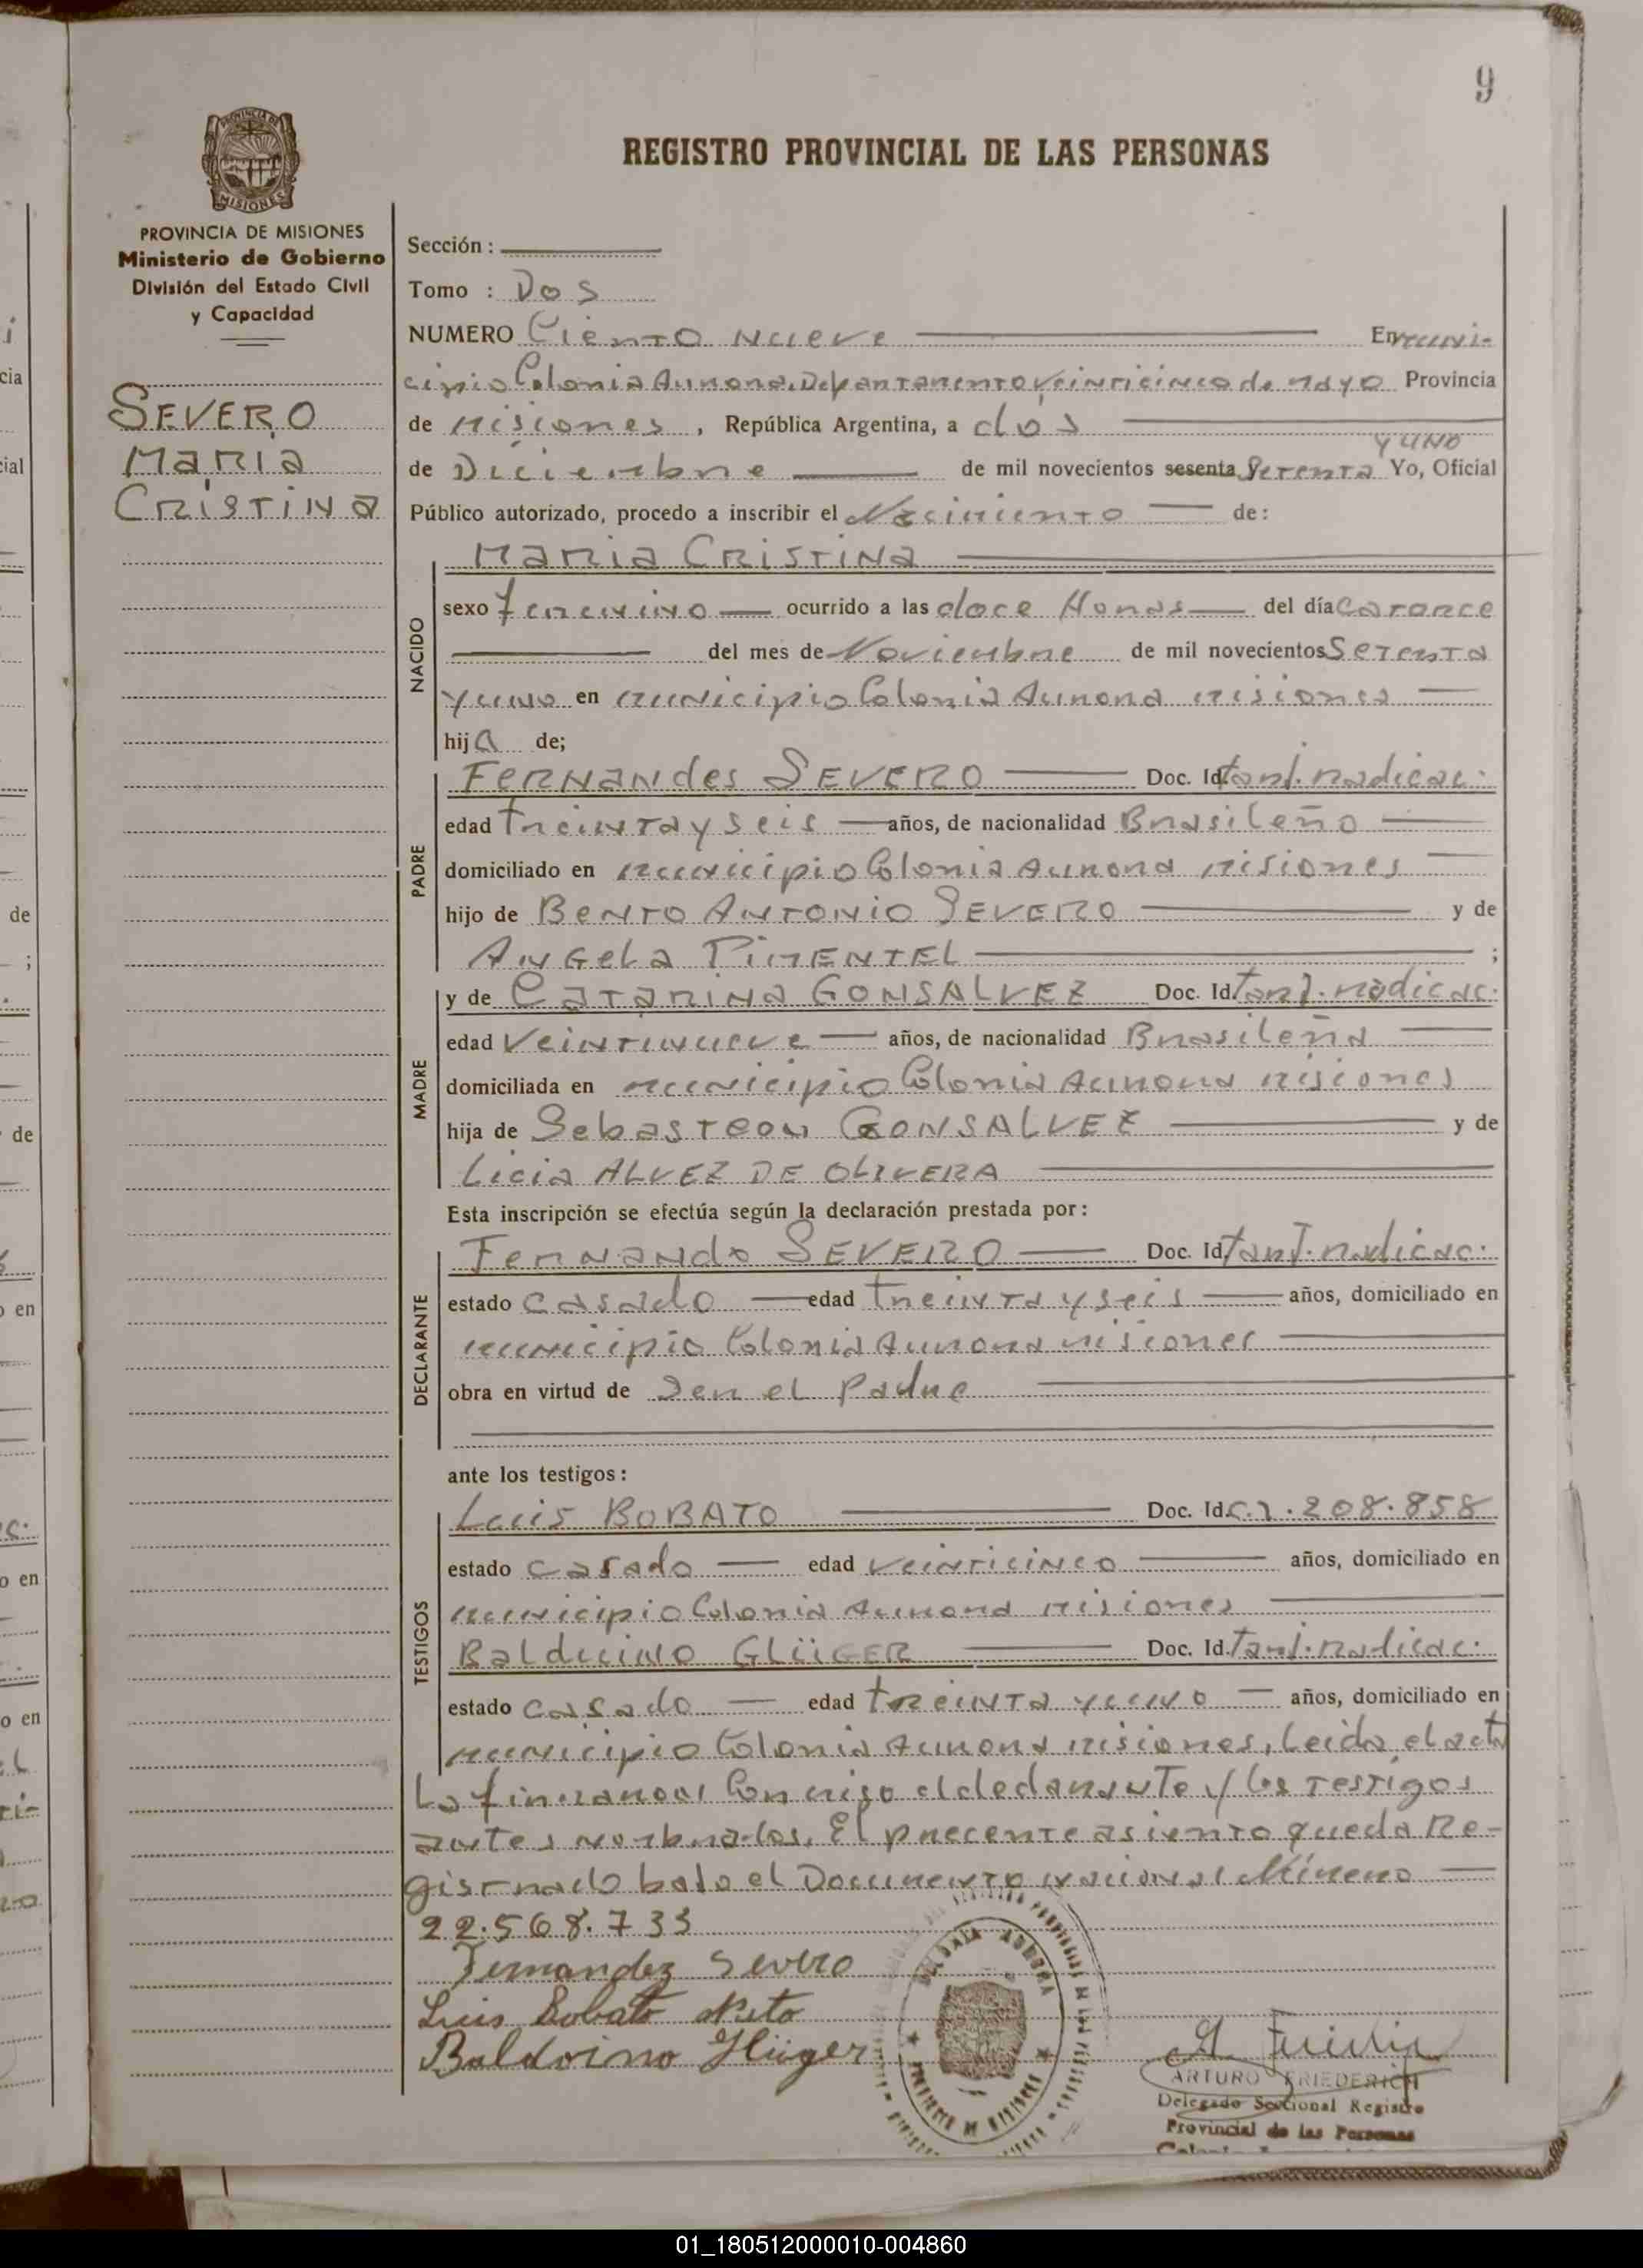 9
REGISTRO PROVINCIAL DE LAS PERSONAS
PROVINCIA DE MISIONES
Ministerio de Gobierno
División del Estado Civil
y Capacidad
SEVERO
MARIA
CRISTINA
Sección :
Tomo : DOS
NUMERO Ciento nueve En muni-
cipio Colonia Aurora, Departamento Veinticinco de mayo Provincia
de Misiones , República Argentina, a dos
y uno
de Diciembre de mil novecientos sesenta Setenta Yo, Oficial
Público autorizado, procedo a inscribir el Nacimiento de:
NACIDO
MARIA CRISTINA
sexo femenino ocurrido a las doce Horas del día catorce
del mes de Noviembre de mil novecientos Setenta
y uno en municipio Colonia Aurora misiones
hija de;
PADRE
Fernandes SEVERO Doc. Id tarj. radicac.
edad treinta y seis años, de nacionalidad Brasileño
domiciliado en municipio Colonia Aurora misiones
hijo de Bento ANTONIO SEVERO y de
Angela PIMENTEL ;
MADRE
y de Catarina GONSALVEZ Doc. Id. tarj. radicac.
edad Veintinueve años, de nacionalidad Brasileña
domiciliada en municipio Colonia Aurora misiones
hija de Sebasteon GONSALVEZ y de
Licia ALVEZ DE OLIVERA
Esta inscripción se efectúa según la declaración prestada por:
DECLARANTE
Fernando SEVERO Doc. Id. tarj. radicac.
estado casado edad treinta y seis años, domiciliado en
municipio Colonia Aurora misiones
obra en virtud de Ser el Padre
ante los testigos:
TESTIGOS
Luis BOBATO Doc. Id. C.I. 208.858
estado casado edad veinticinco años, domiciliado en
municipio Colonia Aurora misiones
Balduino GLÜGER Doc. Id. tarj. radicac.
estado casado edad treinta y uno años, domiciliado en
municipio Colonia Aurora misiones, Leida el acta
La firmaron Conmigo el declarante y los testigos
antes nombrados. El precente asiento queda Re-
gistrado bajo el Documento nacional Número
22.568.733
Fernandez Severo
Luis Bobato Neto
Baldoino Glüger
COLONIA AURORA
PROVINCIA DE MISIONES
ARTURO FRIEDERICH
Delegado Seccional Registro
Provincial de las Personas
01_180512000010-004860